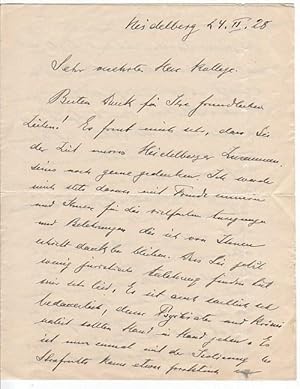 Heidelberg 24. II. 28
Sehr verehrter Herr Kollege.
Besten Dank für Ihre freundlichen
Zeilen! Es freut mich sehr, dass Sie
der Zeit unseres Heidelberger Zusammen-
seins noch gerne gedenken. Ich werde
mich stets daran mit Freude erinnern
und Ihnen für die vielfachen Anregungen
und Belehrungen die ich von Ihnen
erhielt dankbar bleiben. Dass Sie jetzt
wenig juristische Belehrung finden tut
mir sehr leid. Es ist auch sachlich sehr
bedauerlich, denn Psychiater und Krimi-
nalist sollten Hand in Hand gehen. Es
ist nun einmal mit der Isolierung des
Strafrechts kaum etwas praktisch